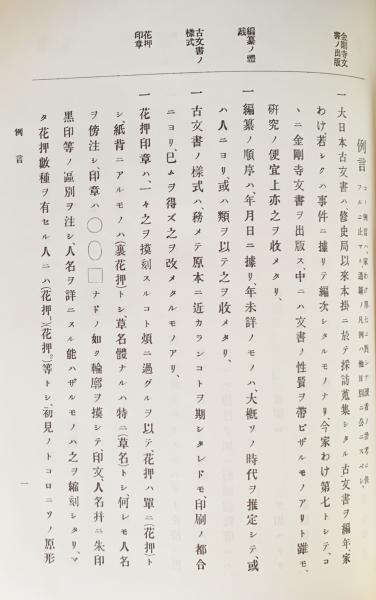 金剛寺文
書ノ出版
編纂ノ體
裁
古文書ノ
樣式
花押
印章
例言
コノ例言ハ、家わけ第七ニ關シテ讀者ノ參考ニ供
フルニ止マル、通編ノ凡例ハ他日別ニ公ニスベシ、
一 大日本古文書ハ、修史局以來本掛ニ於テ採訪蒐集シタル古文書ヲ編年、家
わけ、若シクハ事件ニ據リテ編次シタルモノナリ、今家わけ第七トシテ、コ
ヽニ金剛寺文書ヲ出版ス、中ニハ文書ノ性質ヲ帶ビザルモノアリト雖モ、
硏究ノ便宜上亦之ヲ收メタリ、
一 編纂ノ順序ハ、年月日ニ據リ、年未詳ノモノハ、大槪ソノ時代ヲ推定シテ、或
ハ人ニヨリ、或ハ類ヲ以テ之ヲ收メタリ、
一 古文書ノ樣式ハ、務メテ原本ニ近カランコトヲ期シタレドモ、印刷ノ都合
ニヨリ、已ムヲ得ズ之ヲ改メタルモノアリ、
一 花押印章ハ、一々之ヲ摸刻スルコト煩ニ過グルヲ以テ、花押ハ單ニ(花押)ト
シ、紙背ニアルモノハ(裏花押)トシ、草名體ナルハ特ニ(草名)トシ、何レモ人名
ヲ傍注シ、印章ハ〇〇□ナドノ如ク輪廓ヲ摸シテ、印文、人名幷ニ朱印
黑印等ノ區別ヲ注シ、人名ヲ詳ニスル能ハザルモノハ之ヲ縮刻シタリ、マ
タ花押數種ヲ有セル人ニハ(花押一)(花押二)等トシ、初見ノトコロニソノ原形
例言
一